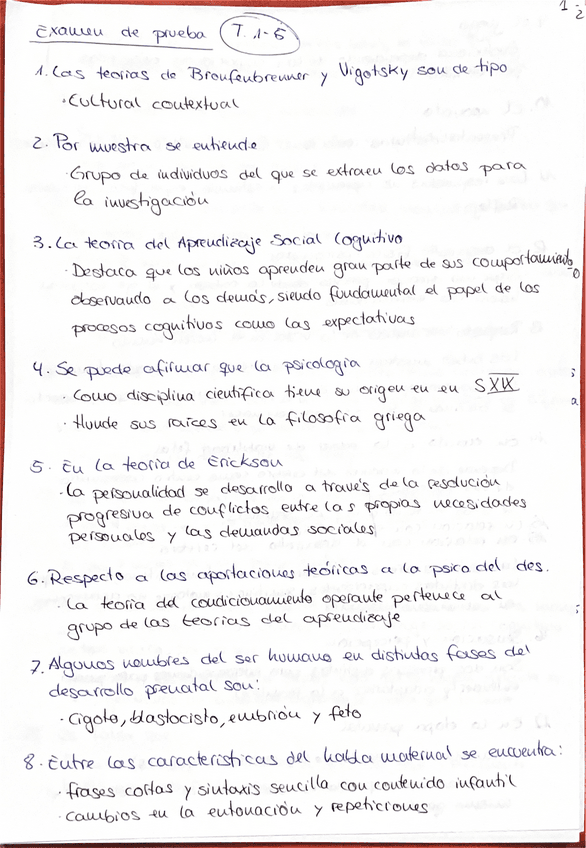 Examen de prueba T. 1-5
1. Las teorías de Broufenbrenner y Vigotsky son de tipo
· Cultural contextual
2. Por muestra se entiende
· Grupo de individuos del que se extraen los datos para
la investigación
3. La teoría del Aprendizaje Social Cognitivo
· Destaca que los niños aprenden gran parte de sus comportamiento
observando a los demás, siendo fundamental el papel de los
procesos cognitivos como las expectativas
4. Se puede afirmar que la psicología
· Como disciplina científica tiene su origen en en S XIX
· Hunde sus raíces en la filosofía griega
5. En la teoría de Erickson
· La personalidad se desarrollo a través de la resolución
progresiva de conflictos entre las propias necesidades
personales y las demandas sociales
6. Respecto a las aportaciones teóricas a la psico del des.
· La teoría del condicionamiento operante pertenece al
grupo de las teorías del aprendizaje
7. Algunos nombres del ser humano en distintas fases del
desarrollo prenatal son:
· Cigoto, blastocisto, embrión y feto
8. Entre las características del habla maternal se encuentra:
· frases cortas y sintaxis sencilla con contenido infantil
· cambios en la entonación y repeticiones